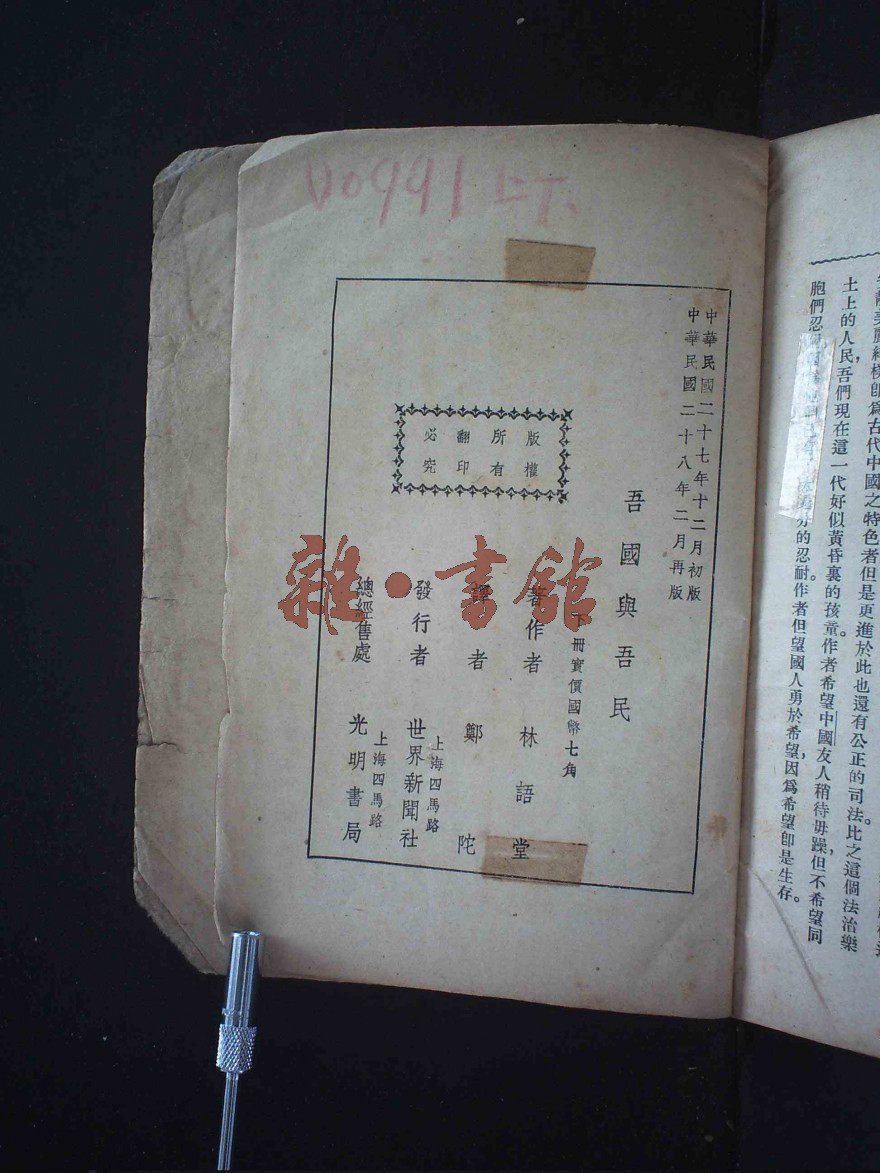 00991上下.
中華民國二十七年十二月初版
中華民國二十八年二月再版
吾國與吾民
下冊實價國幣七角
著作者 林語堂
譯者 鄭陀
發行者 世界新聞社
上海四馬路
總經售處 光明書局
上海四馬路
版權
所有
翻印
必究
雜·書館
土上的人民,吾們現在這一代好似黃昏裏的孩童。作者希望中國友人稍待毋躁,但不希望同
胞們忍
的忍耐。作者但望國人勇於希望,因爲希望卽是生存。
卽爲古代中國之特色者但是更進於此也還有公正的司法。比之這個法治樂